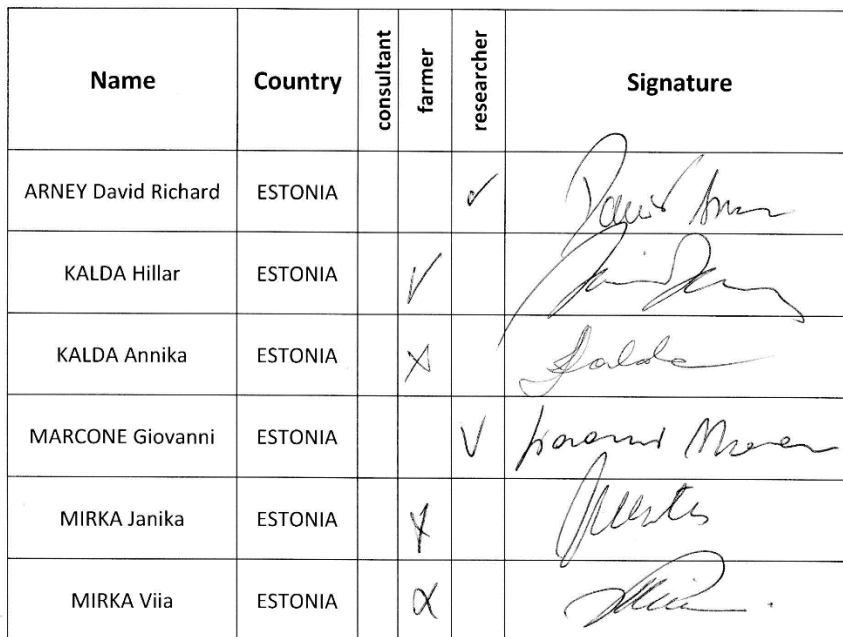 Name Country consultant farmer researcher Signature
ARNEY David Richard ESTONIA ✓ David
KALDA Hillar ESTONIA ✓
KALDA Annika ESTONIA X Kalda
MARCONE Giovanni ESTONIA V Giovanni
MIRKA Janika ESTONIA X
MIRKA Viia ESTONIA X